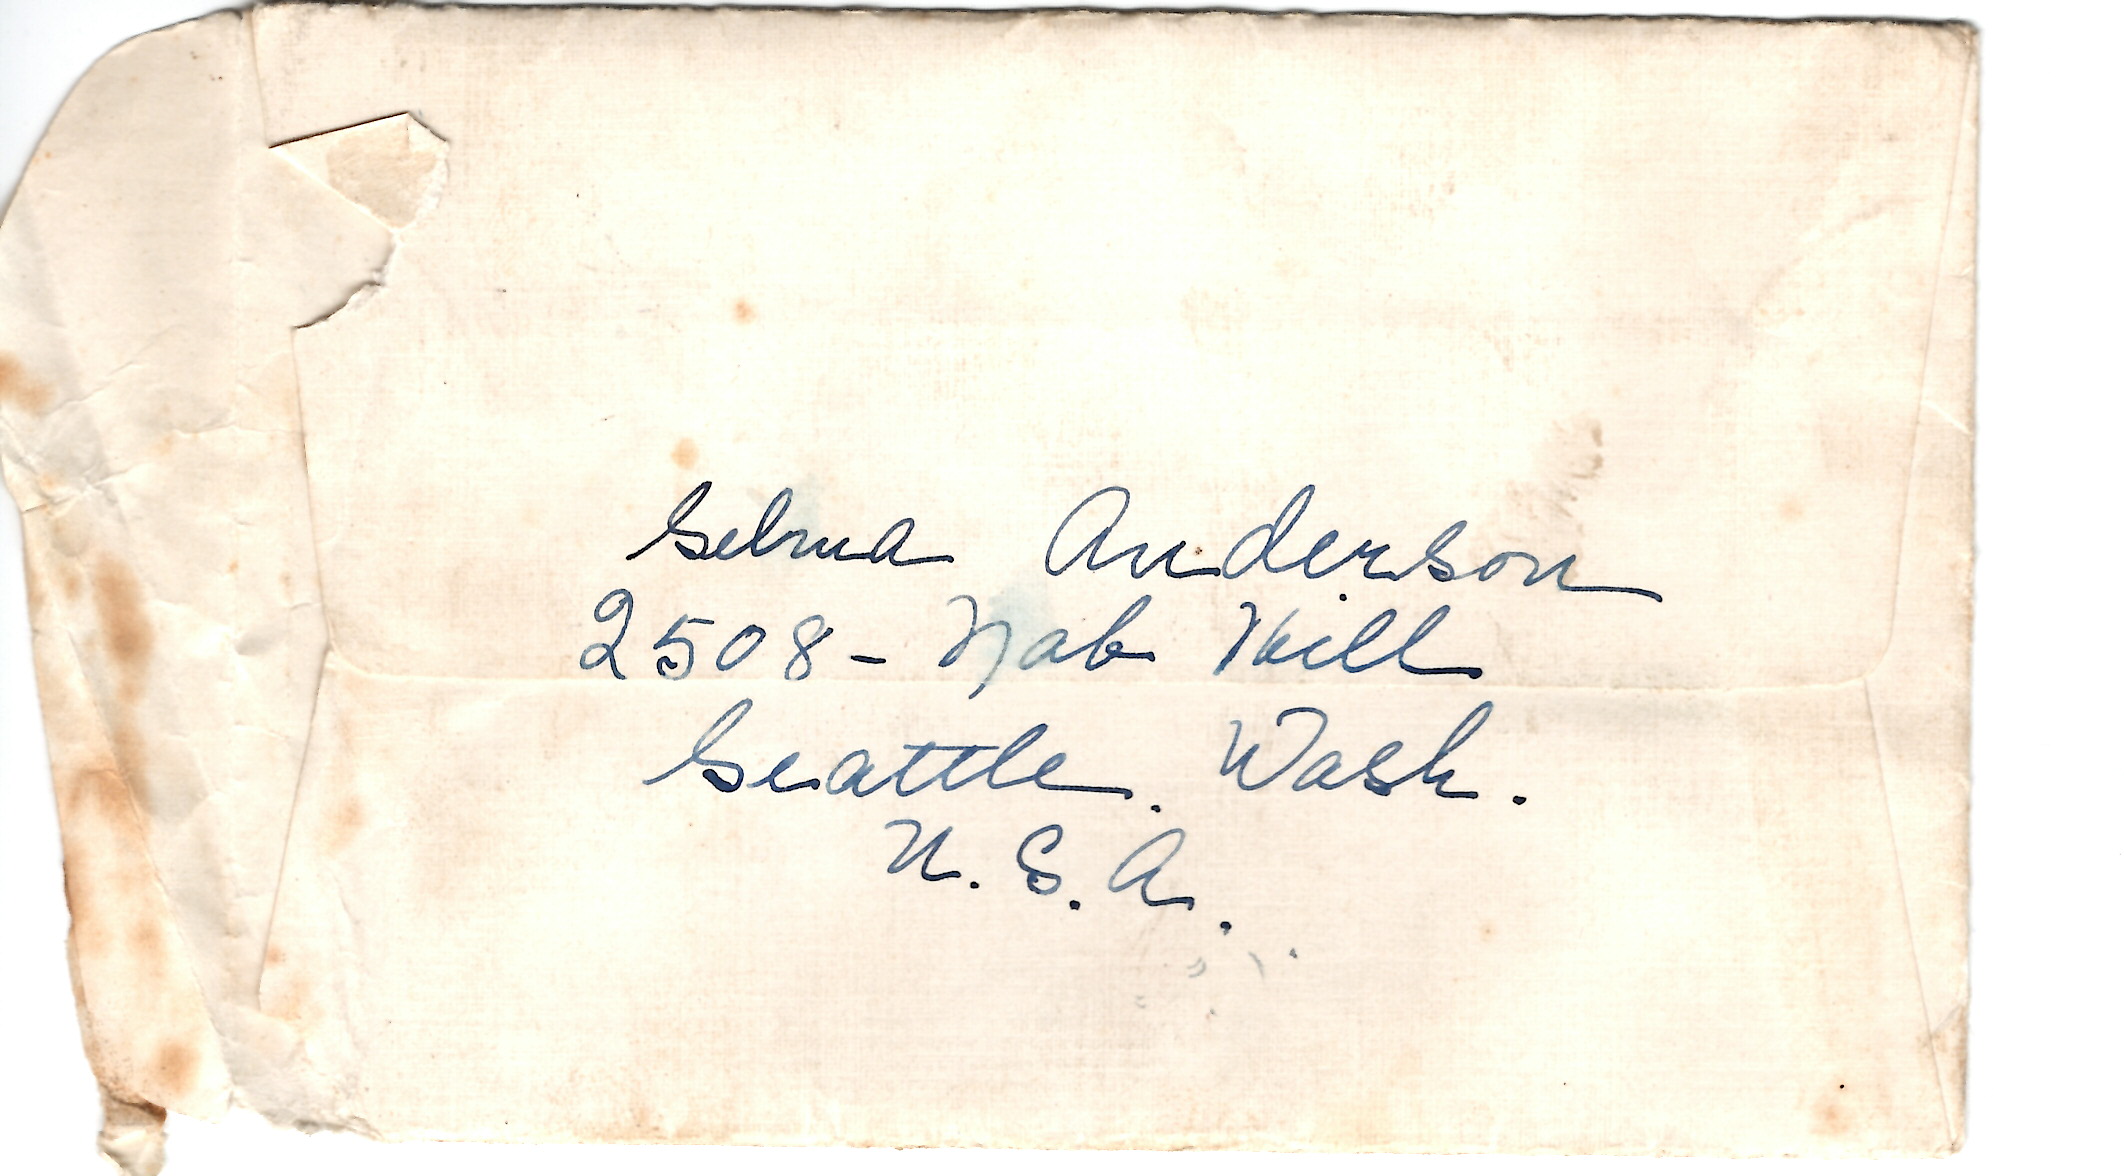 Selma Anderson
2508 - Nob Hill
Seattle. Wash.
U. S. A.